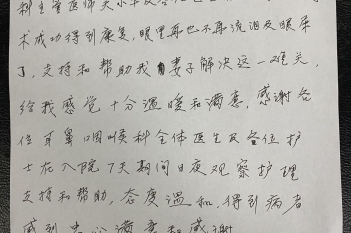 科主管医师
术成功得到康复,眼里再也不再流泪及眼屎
了,支持和帮助我妻子解决这一难关,
给我感觉十分温暖和满意,感谢各
位耳鼻咽喉科全体医生及各位护
士在入院7天期间日夜观察护理
支持和帮助,态度温和,得到病者
感到衷心满意和感谢